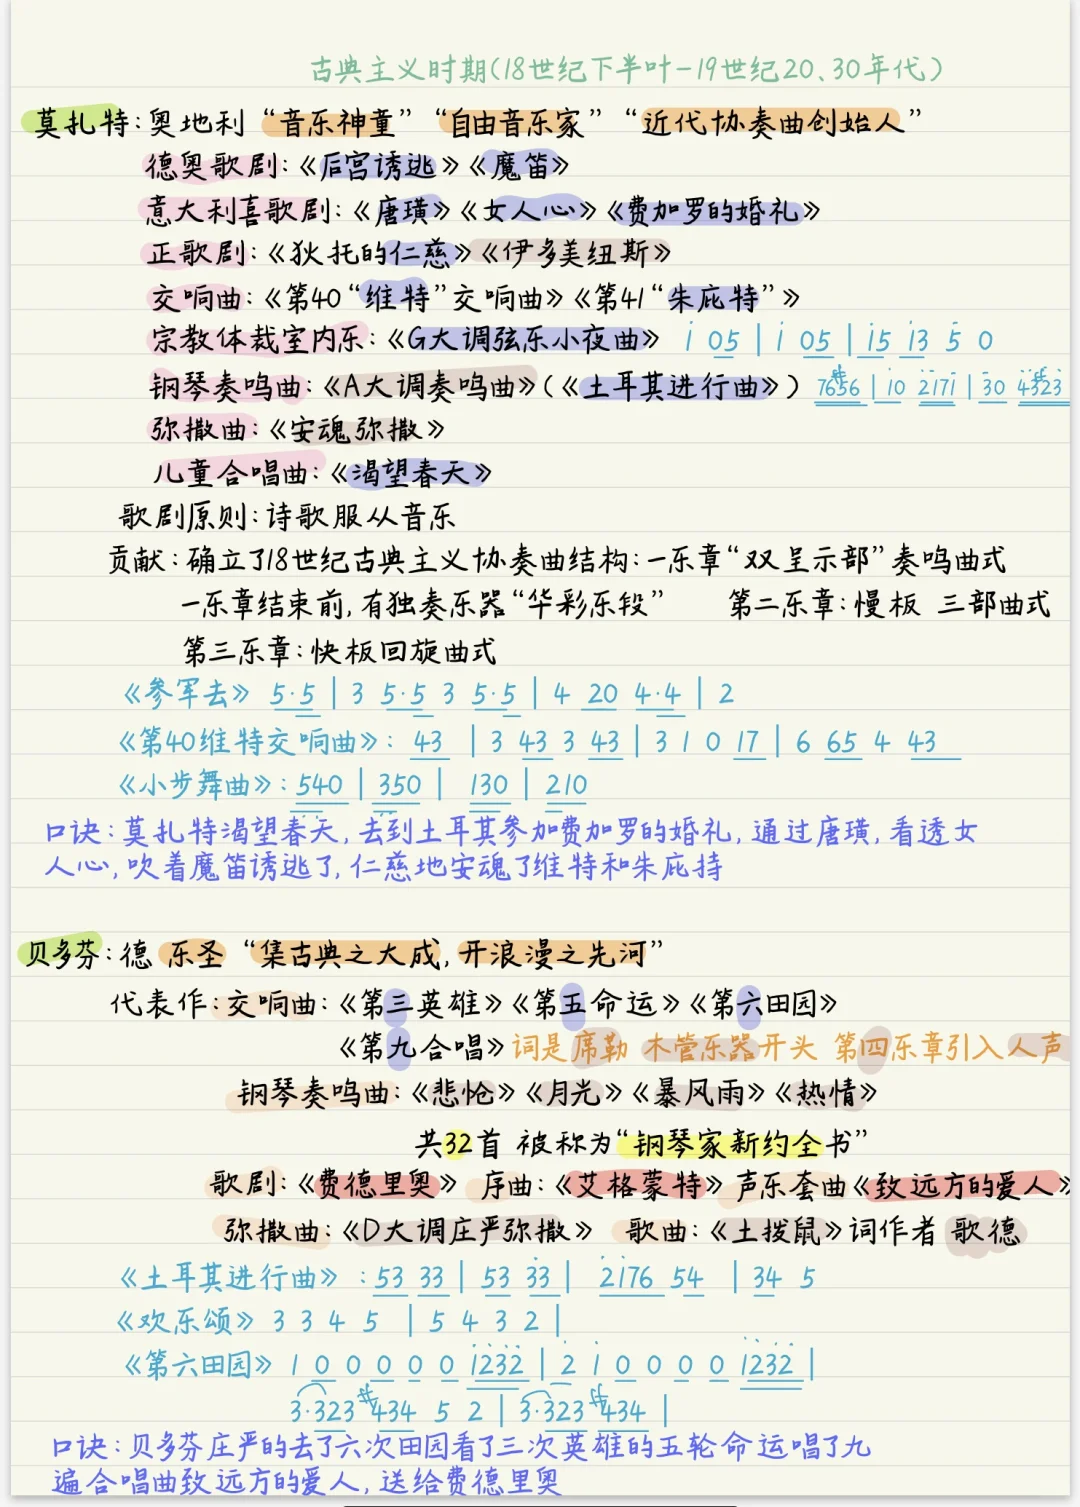 古典主义时期(18世纪下半叶-19世纪20、30年代)
莫扎特:奥地利 “音乐神童” “自由音乐家” “近代协奏曲创始人”
德奥歌剧:《后宫诱逃》《魔笛》
意大利喜歌剧:《唐璜》《女人心》《费加罗的婚礼》
正歌剧:《狄托的仁慈》《伊多美纽斯》
交响曲:《第40“维特”交响曲》《第41“朱庇特”》
宗教体裁室内乐:《G大调弦乐小夜曲》 1 05 | 1 05 | 15 13 5 0
钢琴奏鸣曲:《A大调奏鸣曲》(《土耳其进行曲》) 7#656 | 10 2171 | 30 4#323
弥撒曲:《安魂弥撒》
儿童合唱曲:《渴望春天》
歌剧原则:诗歌服从音乐
贡献:确立了18世纪古典主义协奏曲结构:一乐章“双呈示部”奏鸣曲式
一乐章结束前,有独奏乐器“华彩乐段” 第二乐章:慢板 三部曲式
第三乐章:快板回旋曲式
《参军去》 5·5 | 3 5·5 3 5·5 | 4 20 4·4 | 2
《第40维特交响曲》: 43 | 3 43 3 43 | 3 1 0 17 | 6 65 4 43
《小步舞曲》: 540 | 350 | 130 | 210
口诀:莫扎特渴望春天,去到土耳其参加费加罗的婚礼,通过唐璜,看透女
人心,吹着魔笛诱逃了,仁慈地安魂了维特和朱庇持
贝多芬:德 乐圣 “集古典之大成,开浪漫之先河”
代表作:交响曲:《第三英雄》《第五命运》《第六田园》
《第九合唱》词是席勒 木管乐器开头 第四乐章引入人声
钢琴奏鸣曲:《悲怆》《月光》《暴风雨》《热情》
共32首 被称为“钢琴家新约全书”
歌剧:《费德里奥》 序曲:《艾格蒙特》 声乐套曲《致远方的爱人》
弥撒曲:《D大调庄严弥撒》 歌曲:《土拨鼠》词作者 歌德
《土耳其进行曲》 :53 33 | 53 33 | 2176 54 | 34 5
《欢乐颂》 3 3 4 5 | 5 4 3 2 |
《第六田园》 1 0 0 0 0 0 1232 | 2 1 0 0 0 0 1232 |
3·323 #434 5 2 | 3·323 #434 |
口诀:贝多芬庄严的去了六次田园看了三次英雄的五轮命运唱了九
遍合唱曲致远方的爱人,送给费德里奥